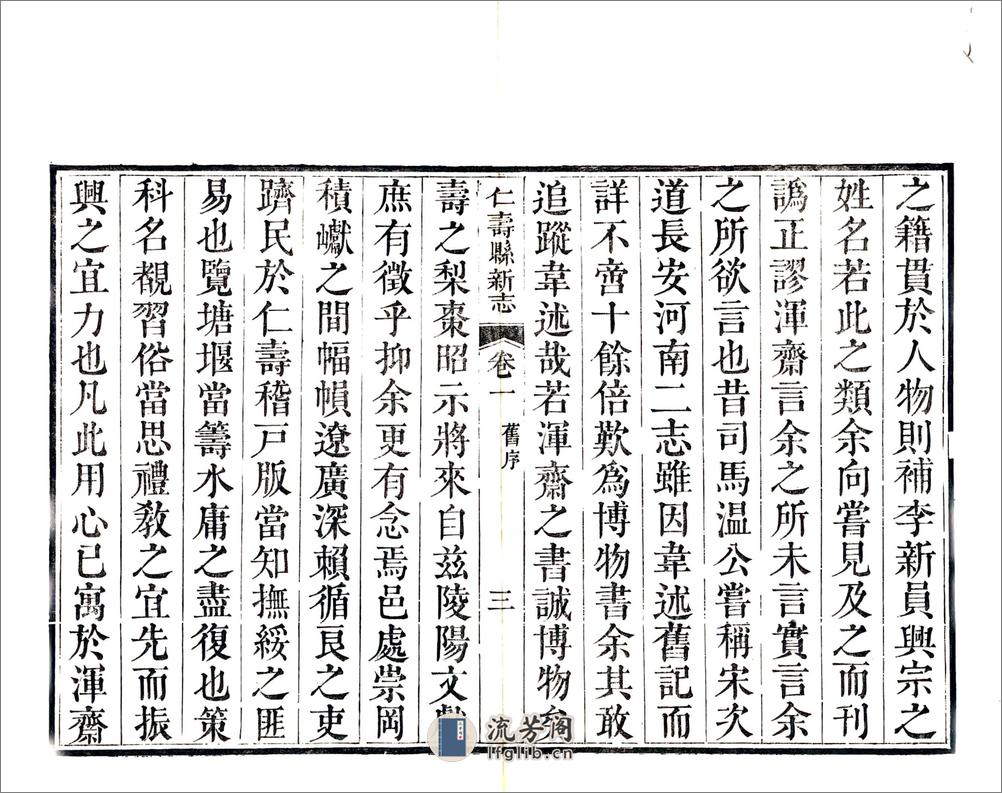 之籍貫於人物則補李新員興宗之
姓名若此之類余向嘗見及之而刊
譌正謬渾齋言余之所未言實言余
之所欲言也昔司馬温公嘗稱宋次
道長安河南二志雖因韋述舊記而
詳不啻十餘倍歎為博物書余其敢
追蹤韋述哉若渾齋之書誠博物矣
仁壽縣新志 卷一 舊序 三
壽之梨棗昭示將來自茲陵陽文獻
庶有徵乎抑余更有念焉邑處崇岡
積巘之間幅幀遼廣深賴循良之吏
躋民於仁壽稽戸版當知撫綏之匪
易也覽塘堰當籌水庸之盡復也策
科名覩習俗當思禮教之宜先而振
興之宜力也凡此用心已寓於渾齋
流芳阁
lfglib.cn